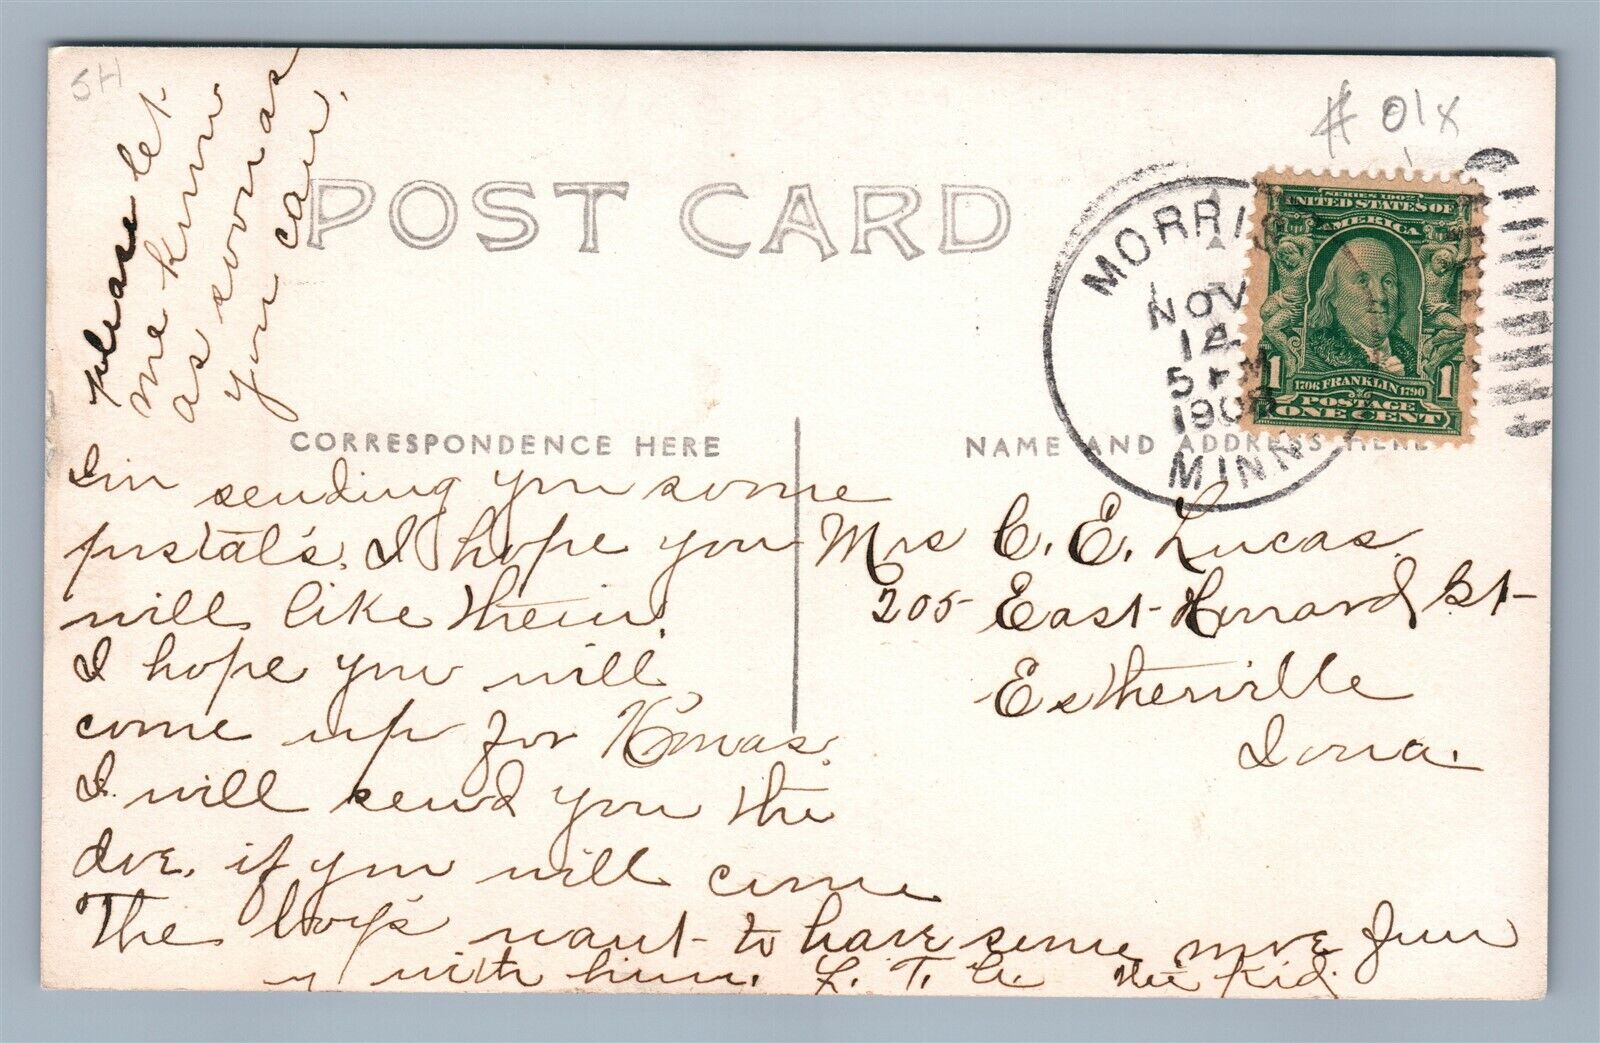 5H
# 01x
Please let
me know
as soon as
you can.
POST CARD
MORRIS
NOV
14
5 PM
190
MINN
SERIES 1902
UNITED STATES OF
AMERICA
1706 FRANKLIN 1790
POSTAGE
1 ONE CENT 1
CORRESPONDENCE HERE
NAME AND ADDRESS HERE
I'm sending you some
postal's. I hope you
will like them.
I hope you will
come up for Xmas.
I will send you the
if you will come
The boy's want to have some more fun
with him. L. T. A. The Kid.
Mrs C. E. Lucas
205 East Howard St
Estherville
Iowa.